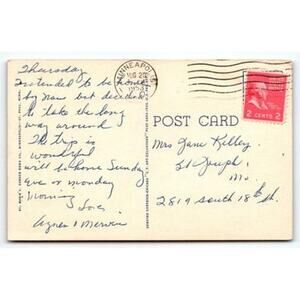 Thursday
Intended to be home
by now but decided
to take the long
way around
The trip is
wonderful
will be home Sunday
eve or monday
morning
Love
Agnes & Merwin
MINNEAPOLIS
AUG 20
POST CARD
2 CENTS 2
Mrs Jane Kelley
St Joseph
Mo.
2819 South 18th St